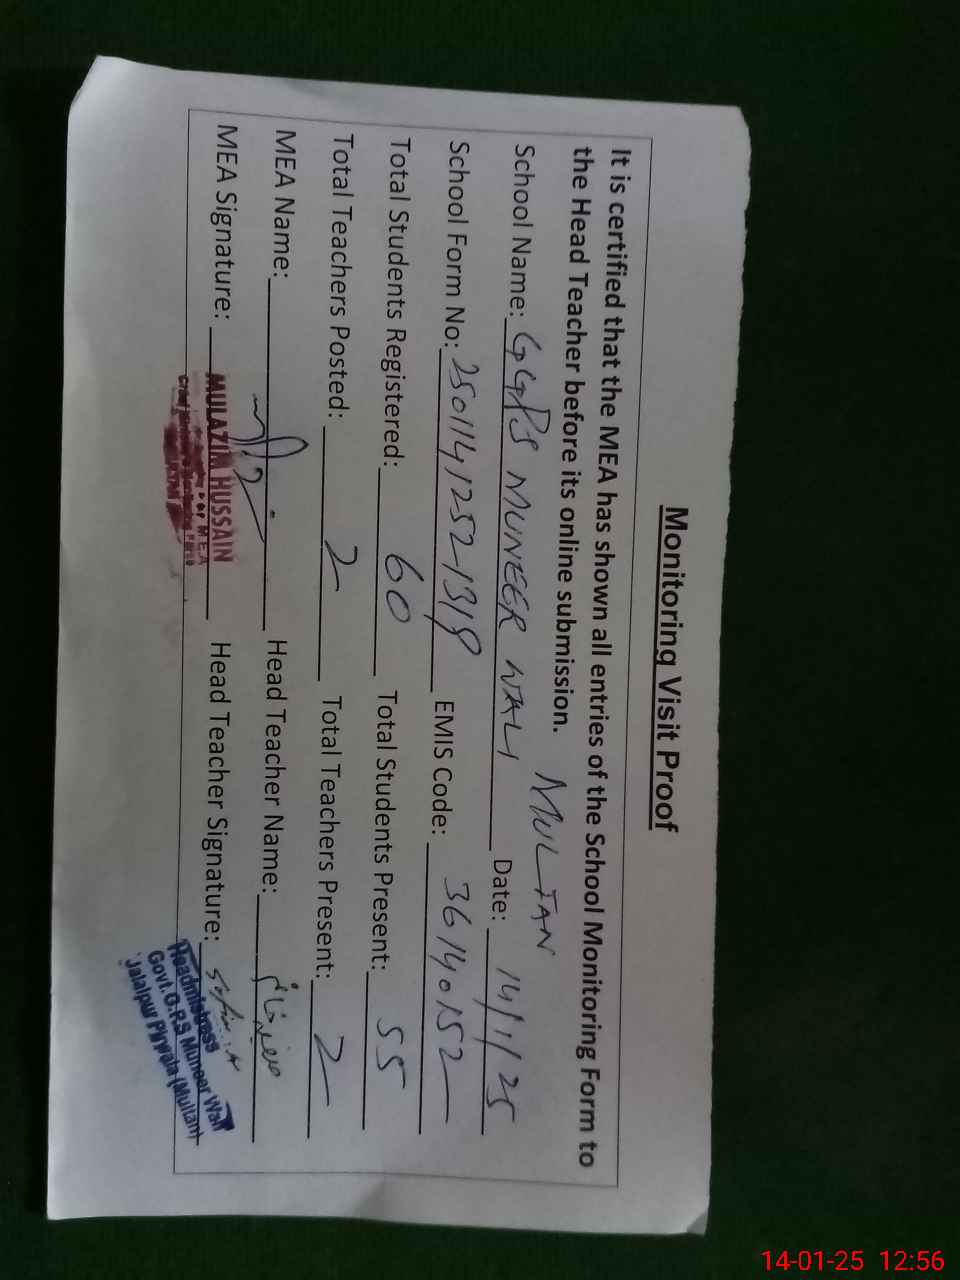 Monitoring Visit Proof
It is certified that the MEA has shown all entries of the School Monitoring Form to
the Head Teacher before its online submission. MULTAN
School Name: GGPS MUNEER WALI Date: 14/1/25
School Form No: 2501141252-1318 EMIS Code: 36140152
Total Students Registered: 60 Total Students Present: 55
Total Teachers Posted: 2 Total Teachers Present: 2
MEA Name: Head Teacher Name:
MEA Signature: Head Teacher Signature:
MULAZIM HUSSAIN
MEA
Headmistress
Govt. G.P.S Muneer Wali
Jalalpur Pirwala (Multan)
14-01-25 12:56